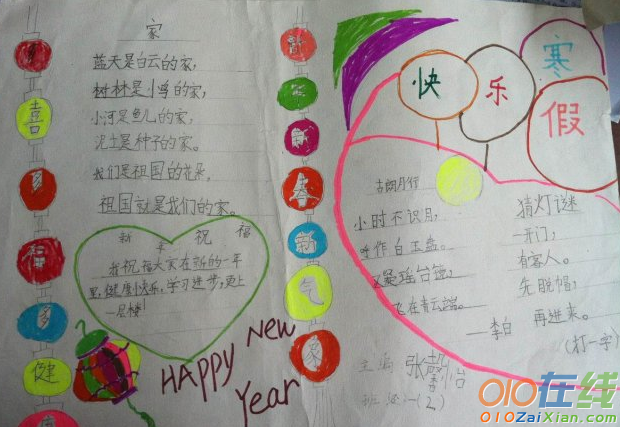 家
蓝天是白云的家,
树林是小鸟的家,
小河是鱼儿的家,
泥土是种子的家。
我们是祖国的花朵,
祖国就是我们的家。
新年祝福
我祝福大家在新的一年
里,健康快乐,学习进步,更上
一层楼!
HAPPY New
Year
喜
福
多
健
康
新
春
新
气
象
快乐
寒
假
古朗月行
小时不识月,
呼作白玉盘。
又疑瑶台镜,
飞在青云端。
——李白
猜灯谜
一开门,
有客人。
先脱帽,
再进来。
(打一字)
主编
张
怡
班级 一(2)
010在线
010ZaiXian.com